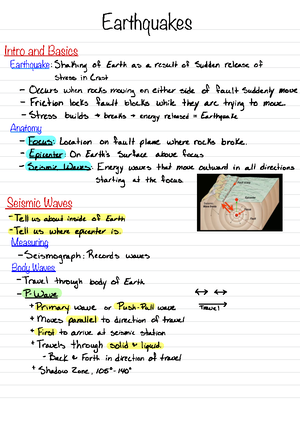 Earthquakes
Intro and Basics
Earthquake: Shaking of Earth as a result of Sudden release of
Stress in Crust
- Occurs when rocks moving on either side of fault Suddenly move
- Friction locks fault blocks while they are trying to move.
- Stress builds → breaks → energy released = Earthquake
Anatomy
- Focus: Location on fault plane where rocks broke.
- Epicenter: On Earth's Surface above focus
- Seismic Waves: Energy waves that move outward in all directions
starting at the focus.
Seismic Waves
- Tell us about inside of Earth
- Tell us where epicenter is.
Measuring
- Seismograph: Records waves
Body Waves
- Travel through body of Earth
- P-Wave
* Primary wave or Push-Pull wave
Travel
* Moves parallel to direction of travel
* First to arrive at seismic station
* Travels through solid & liquid.
- Back & Forth in direction of travel
* Shadow Zone, 105°-140°